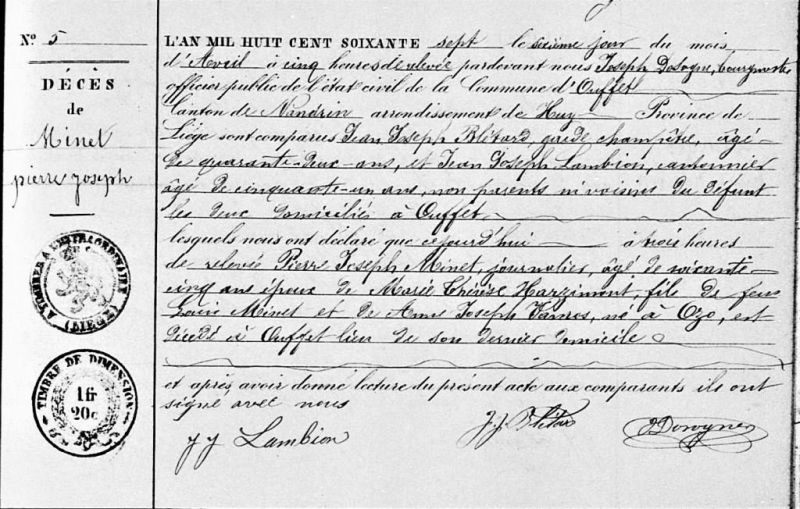 N° 5
DÉCÈS
de
Minet
pierre joseph
A TIMBRER A L'EXTRAORDINAIRE
(LIEGE)
TIMBRE DE DIMENSION
1f
20c
L'AN MIL HUIT CENT SOIXANTE sept le sixième jour du mois
d'Avril à cinq heures de relevée pardevant nous Joseph Dosogne, bourgmestre
officier public de l'état civil de la Commune d'Ouffet
Canton de Nandrin arrondissement de Huy Province de
Liège sont comparus Jean Joseph Blétard, garde champêtre, âgé
de quarante-deux-ans, et Jean Joseph Lambion, cantonnier
âgé de cinquante-un ans, non parents ni voisins du défunt
les deux domiciliés à Ouffet
lesquels nous ont déclaré que cejourd'hui à trois heures
de relevée Pierre Joseph Minet, journalier, âgé de soixante-
cinq ans époux de Marie Thérèse Harzimont, fils de feu
Louis Minet et de Anne Joseph, né à Ozo, est
décédé à Ouffet lieu de son dernier domicile
et après avoir donné lecture du présent acte aux comparants ils ont
signé avec nous
J J Lambion
J. J.